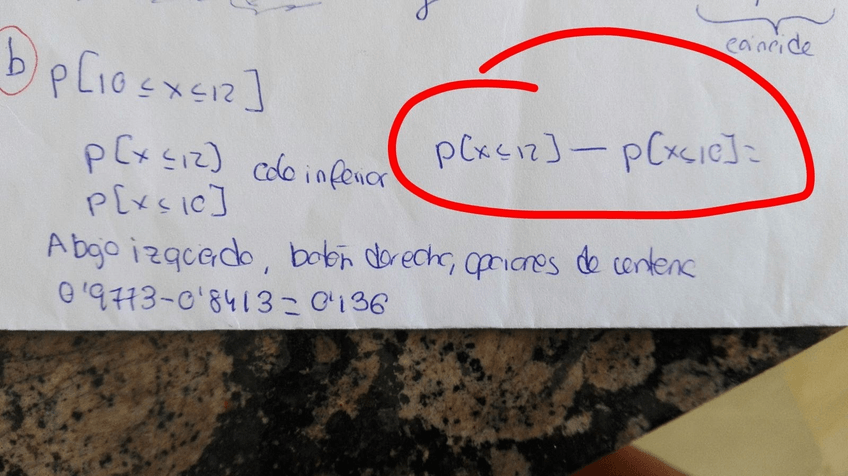 coincide
b p[10 ≤ x ≤ 12]
p[x ≤ 12] cola inferior
p[x ≤ 12] — p[x ≤ 10] =
p[x ≤ 10]
Abajo izquierdo, botón derecho, opciones de
0'9773 - 0'8413 = 0'136